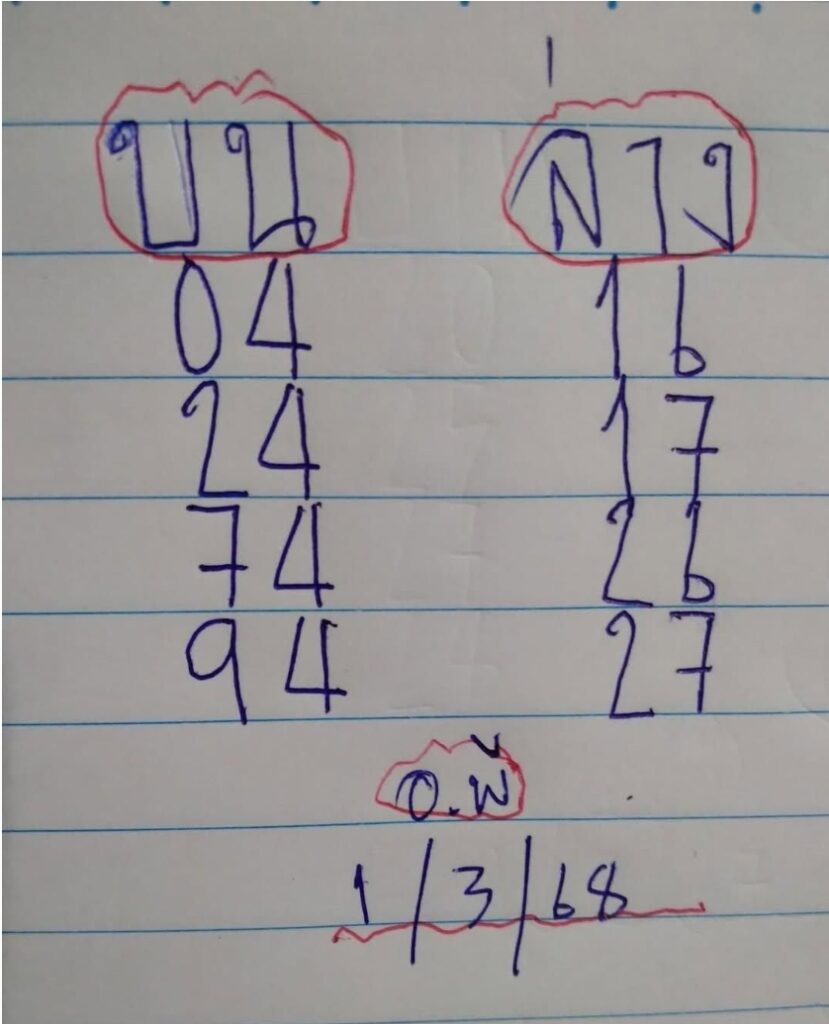 บน ล่าง
04 16
24 17
74 26
94 27
1/3/68